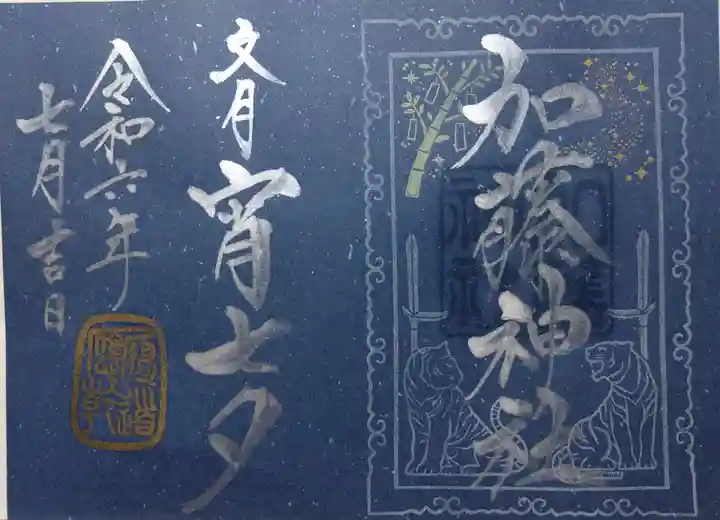 加藤神社
文月
宵七夕
令和六年
七月吉日